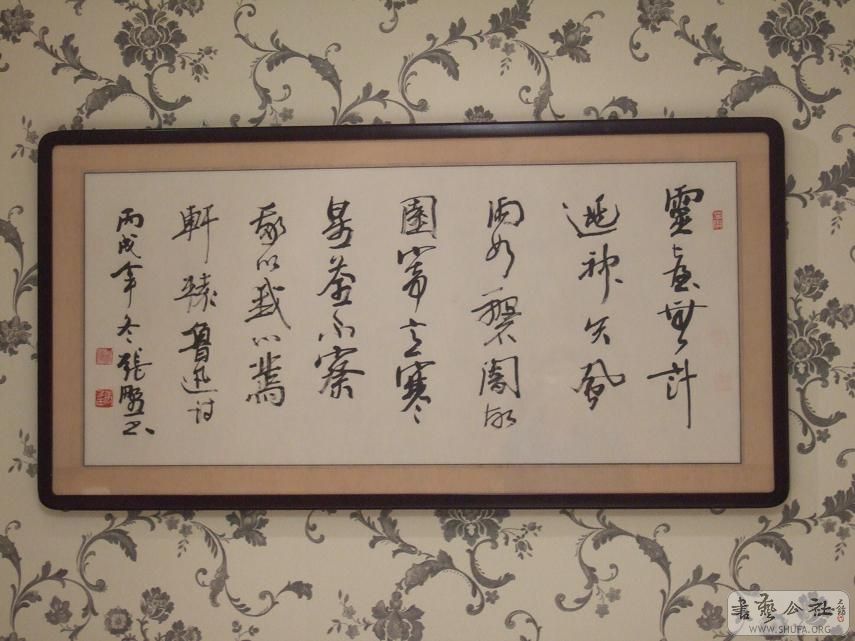 靈臺無計
逃神矢風
雨如磐闇故
園寄意寒
星荃不察
我以我血薦
軒轅魯迅詩
丙戌年冬張鵬書
書藝公社
WWW.SHUFA.ORG